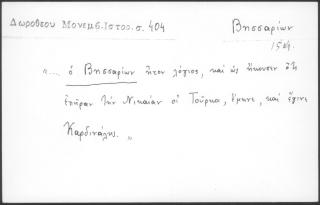 Δωροθεου Μονεμβ. Ιστορ. σ. 404
Βησσαρίων
"... ὁ Βησσαρίων ἦτον λόγιος, καὶ ὡς ἤκουσεν ὅτι
ἐπῆραν τὴν Νικαίαν οἱ Τοῦρκοι, ἔφυγε, καὶ ἔγινε
Καρδινάλης. "